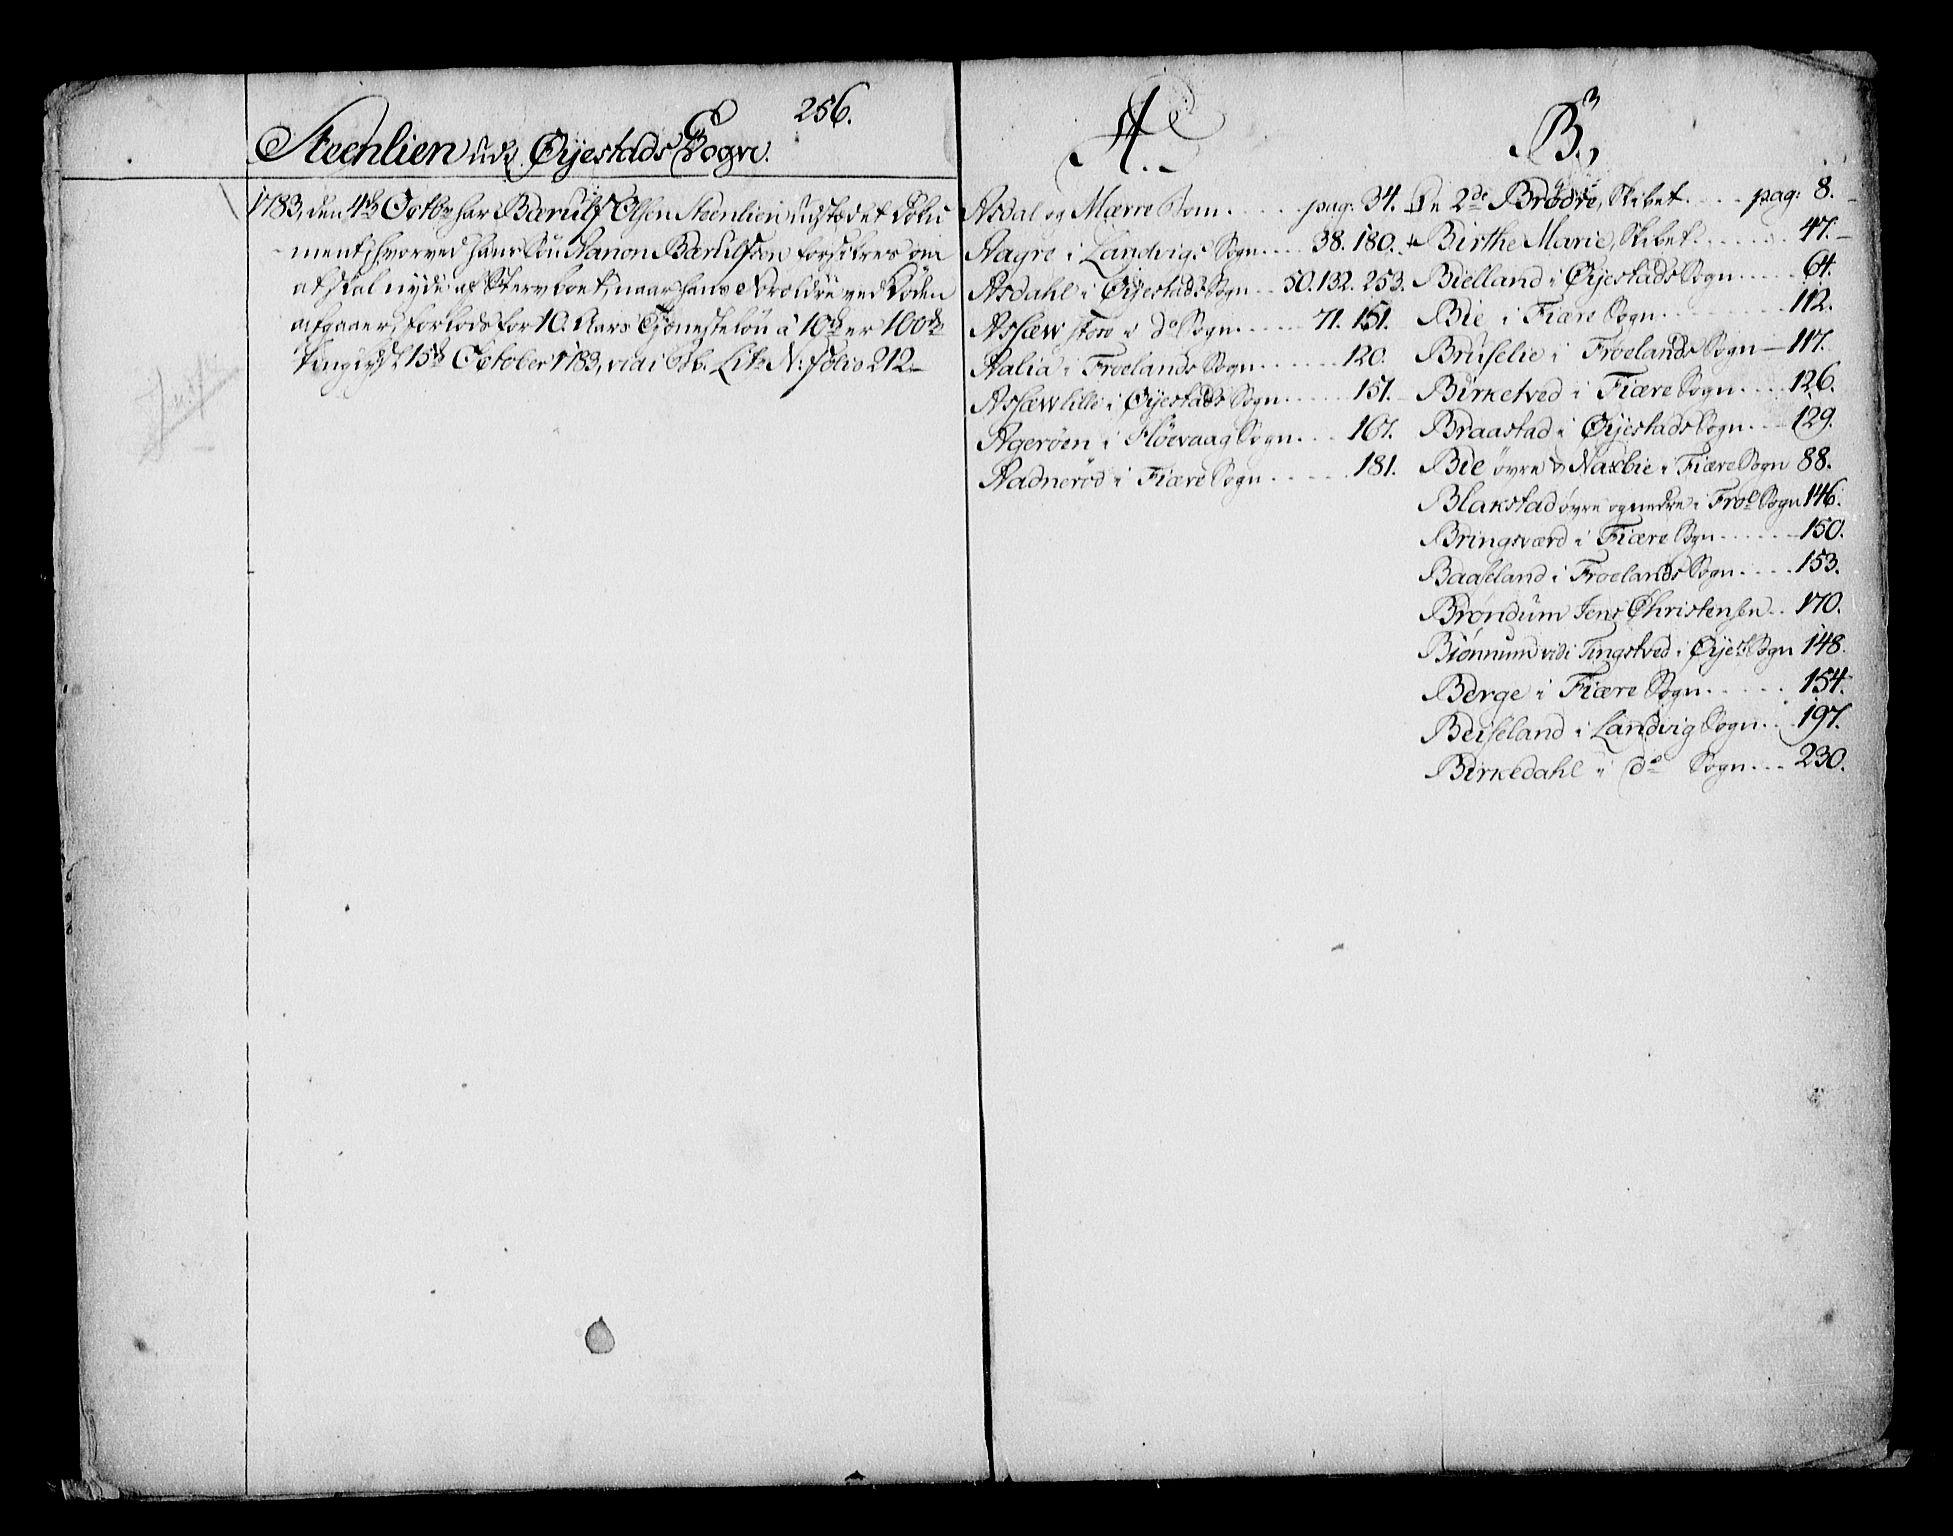 256.
Steenlien udi Øyestads Sogn.
1783, den 4de Octbr har Bærulf Olsen Steenlien udstædet Doku
ment, hvorved hans Søn Aanon Bærulfsen forsikres om
at skal nyde af Stervboet, naar hans Forældre ved Døden
afgaaer, forlods for 10. Aars Tjenesteløn á 10 rd er 100 rd
Tinglyst 15de October 1783, vid: Pb. Litr N: Folio 212.
A.
Asdal og Mærre Bom . . . . . pag: 34.
Aagre i Landvigs Sogn . . . 38. 180.
Asdahl i Øyestads Sogn . . 50. 132. 253.
Assæw store i do Sogn . . . . . 71. 151.
Aalia i Froelands Sogn . . . . . . 120.
Assæw lille i Øyestads Sogn . . . . . 151.
Agerøen i Høevaag Sogn . . . 167.
Aadnerød i Fiære Sogn . . . . . 181.
3
B.
De 2de Brødre, Skibet . . . . pag: 8.
+ Birthe Marie, Skibet . . . . . . 47.
Bielland i Øyestads Sogn . . . . . 64.
Bie i Fiære Sogn . . . . . . . . . 112.
Bruselie i Froelands Sogn — 117.
Birketved i Fiære Sogn . . . . 126.
Braastad i Øyestads Sogn . . . 129.
Bie øvre & Naxbie i Fiære Sogn 88.
Blakstad øvre og nedre i Froel Sogn 146.
Bringsværd i Fiære Sogn . . . . . . 150.
Baaseland i Froelands Sogn . . . . 153.
Brøndum Jens Christensen . . 170.
Biønnum vidi Tingstved i Øyest Sogn 148.
Berge i Fiære Sogn . . . . . 154.
Beiseland i Landvig Sogn . . . 197.
Birkedahl i do Sogn . . . 230.